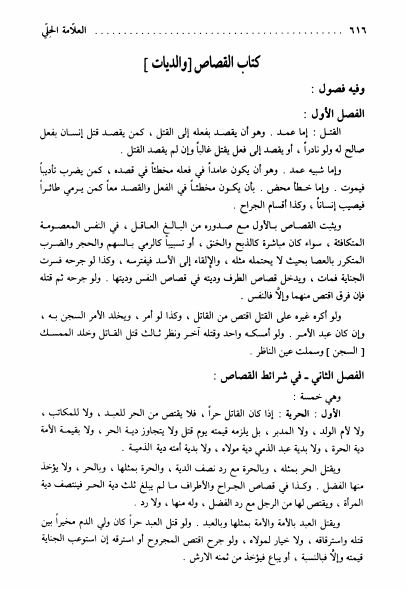 ٦١٦ ........................................ العلّامة الحِلّي
كتاب القصاص [والديات]
وفيه فصول :
الفصل الأول :
القتـل : إما عمد . وهو أن يقصد بفعله إلى القتل ، كمن يقصد قتل إنسـان بفعل
صالح له ولو نادراً ، أو يقصد إلى فعل يقتل غالباً وإن لم يقصد القتل .
وإما شبيه عمد . وهو أن يكون عامداً في فعله مخطئاً في قصده ، كمن يضرب تأديباً
فيموت . وإما خـطأ محض . بأن يكـون مخطئـاً في الفعل والقصد معاً كمن يرمي طائـراً
فيصيب إنساناً ، وكذا أقسام الجراح .
ويثبت القصـاص بـالأول مـع صدوره من البـالـغ العـاقـل ، في النفس المعصـومة
المتكافئة ، سواء كان مباشرة كالذبح والخنق ، أو تسبيباً كالرمي بـالسهم والحجر والضرب
المتكرر بالعصا بحيث لا يحتمله مثله ، والإلقاء إلى الأسد فيفترسه ، وكذا لو جرحه فسرت
الجناية فمات ، ويدخل قصاص الطرف وديته في قصاص النفس وديتها . ولو جرحه ثم قتله
فإن فرق اقتص منهما وإلّا فالنفس .
ولو أكره غيره على القتل اقتص من القاتل ، وكذا لو أمر ، ويخلد الأمر السجن بـه ،
وإن كان عبد الأمـر . ولو أمسكـه واحد وقتله آخـر ونظر ثـالث قتل القـاتل وخلد الممسك
[ السجن ] وسملت عين الناظر .
الفصل الثاني ـ في شرائط القصاص :
وهي خمسة :
الأول : الحرية : إذا كان القاتل حراً ، فلا يقتص من الحر للعبـد ، ولا للمكاتب ،
ولا لأم الولد ، ولا المدبر ، بل يلزمه قيمته يوم قتل ولا يتجاوز دية الحر ، ولا بقيمة الأمة
دية الحرة ، ولا بدية عبد الذمي دية مولاه ، ولا بدية أمته دية الذمية .
ويقتل الحر بمثله ، وبالحرة مع رد نصف الدية ، والحرة بمثلها ، وبالحر ، ولا يؤخذ
منها الفضل . وكـذا في قصاص الجـراح والأطراف مـا لم يبلغ ثلث دية الحـر فينتصف دية
المرأة ، ويقتص لها من الرجل مع رد الفضل ، وله منها ، ولا رد .
ويقتل العبد بالأمة والأمة بمثلها وبالعبد . ولو قتل العبد حراً كان ولي الدم مخيراً بين
قتله واسترقاقه ، ولا خيار لمولاه ، ولو جرح اقتص المجروح أو استرقه إن استوعب الجناية
قيمته وإلّا فبالنسبة ، أو يباع فيؤخذ من ثمنه الارش .